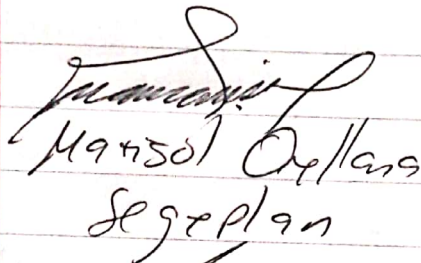 Marisol Orellana
Segeplan